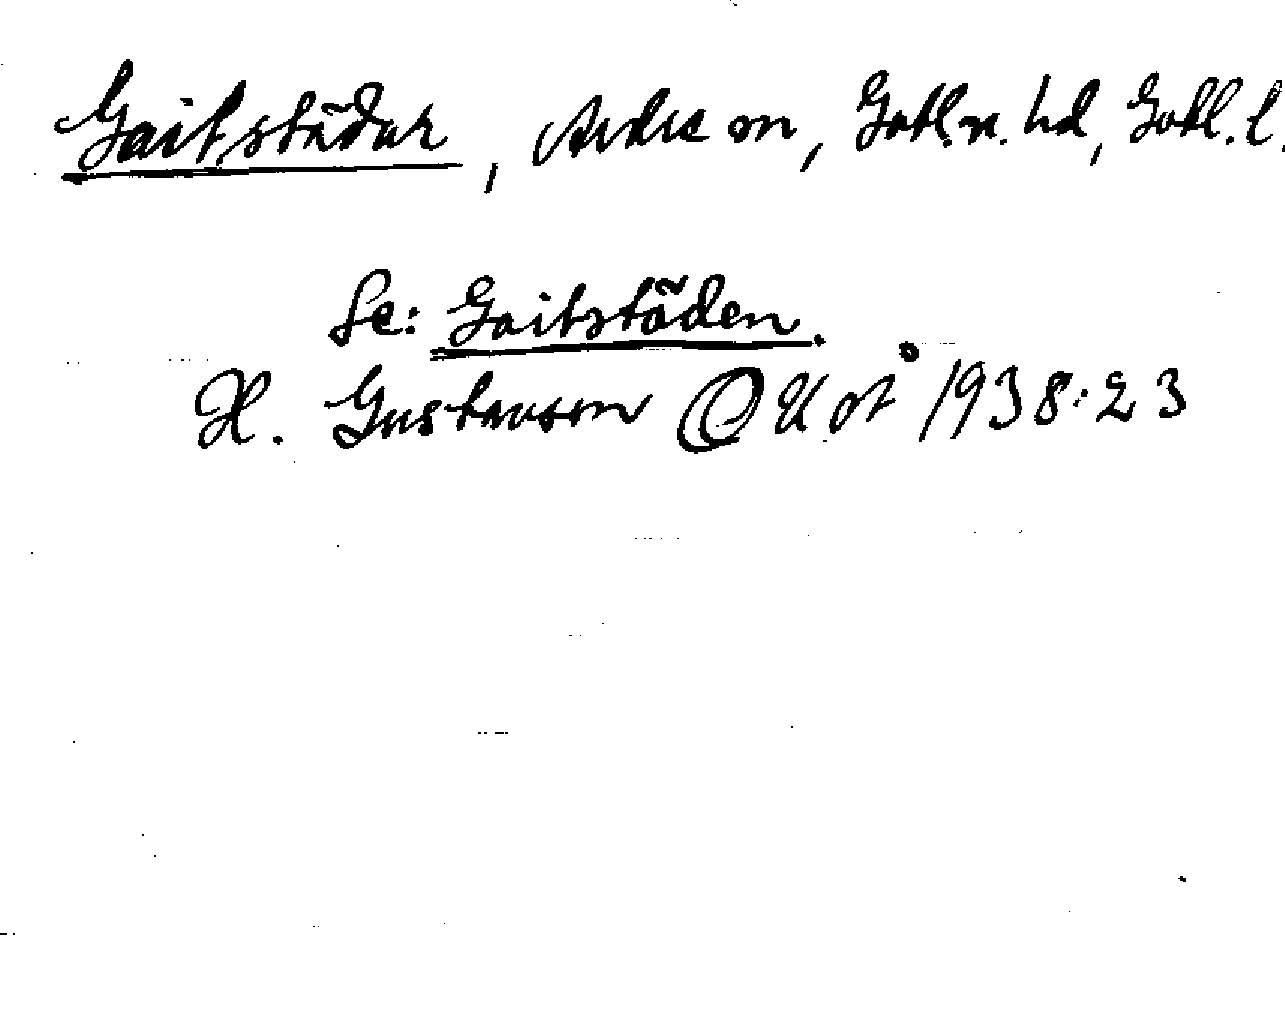 Gaitstädar, Ardre sn, Gotl.n. hd, Gotl. l.
Se: Gaitstäden.
H. Gustavson OUot 1938:23